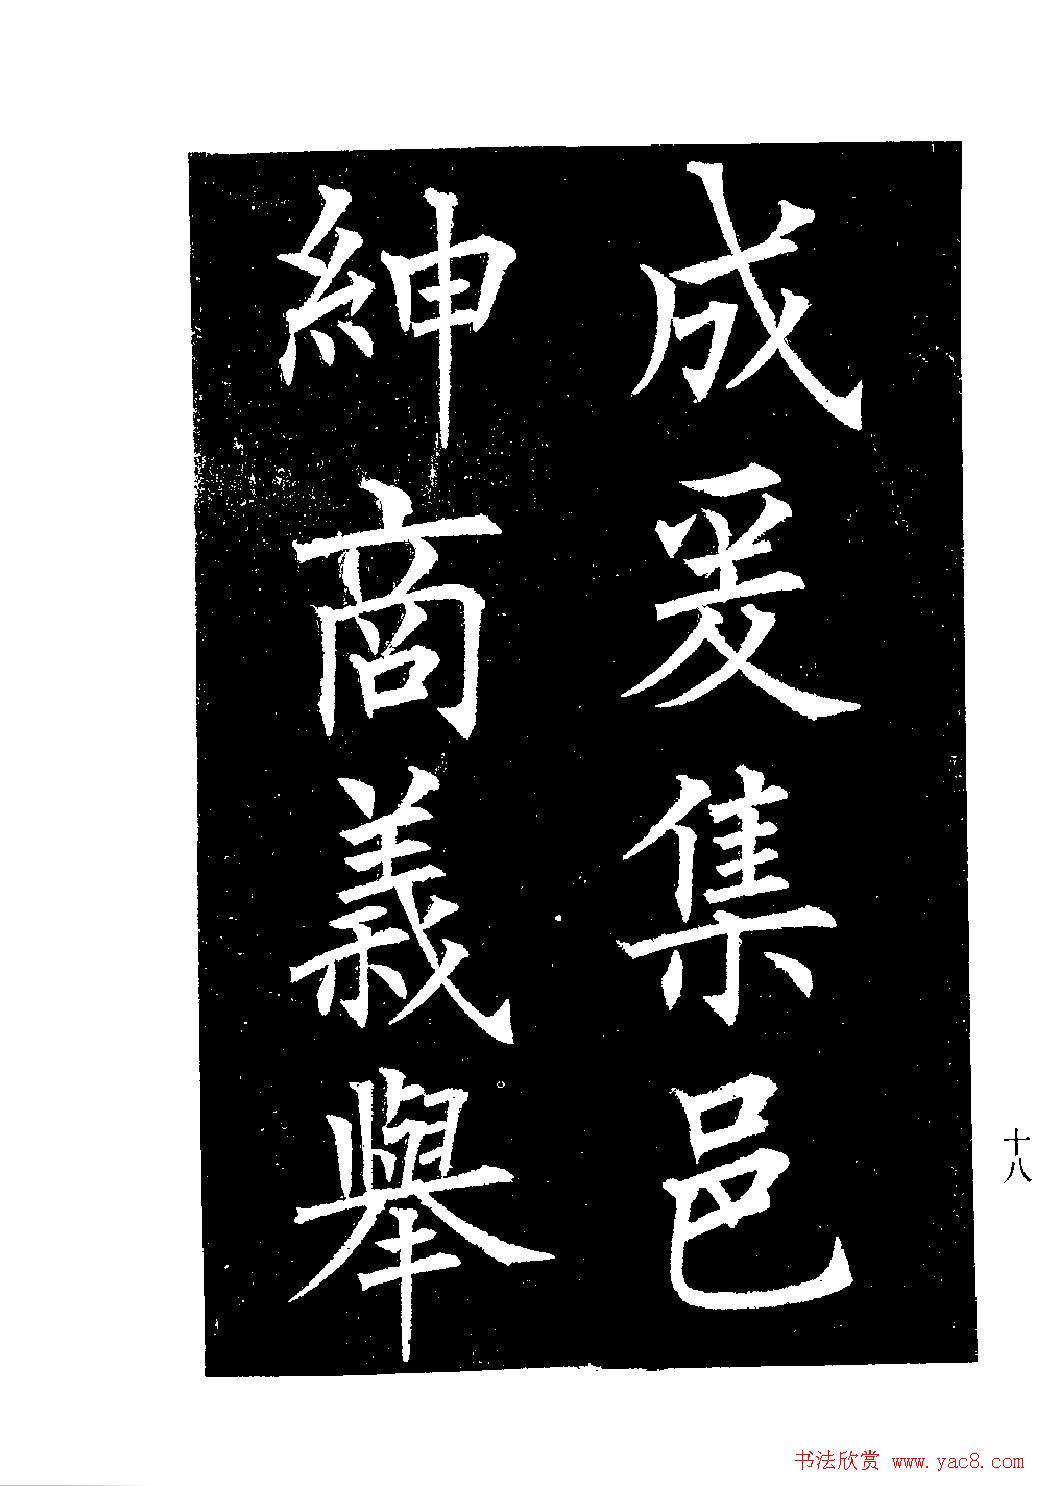 成爰集邑
紳商義舉
十八
书法欣赏 www.yac8.com